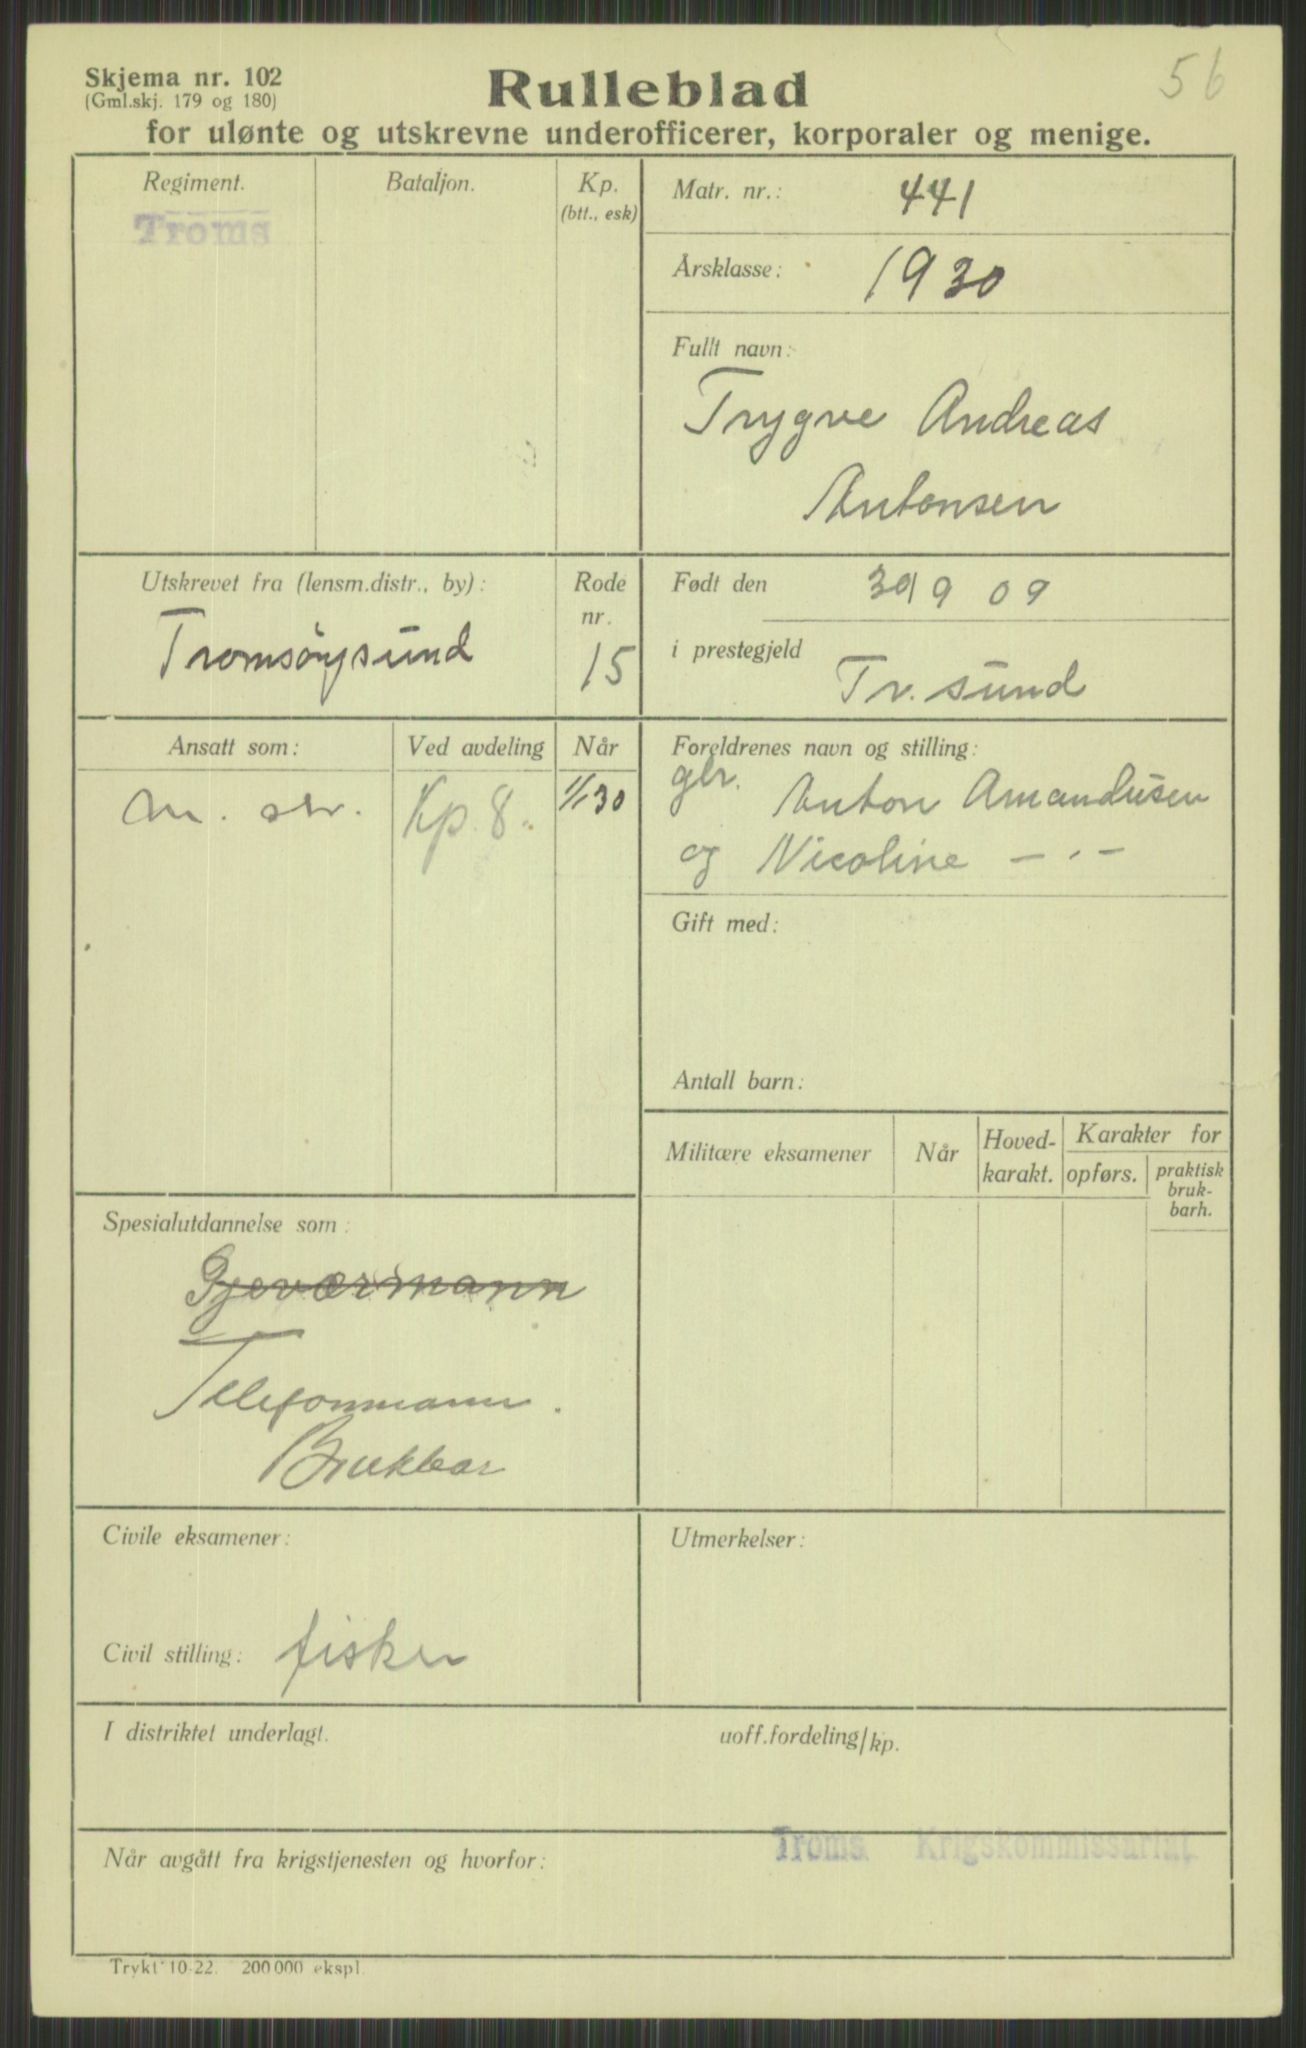 Skjema nr. 102
(Gml.skj. 179 og 180)
56
Rulleblad
for ulønte og utskrevne underofficerer, korporaler og menige.
Regiment.
Bataljon.
Kp.
(btt., esk)
Troms
Matr. nr.: 441
Årsklasse: 1930
Fullt navn:
Trygve Andreas
Antonsen
Utskrevet fra (lensm.distr., by):
Tromsøysund
Rode
nr.
15
Født den 30/9 09
i prestegjeld
Tr. sund
Ansatt som:
Ved avdeling
Når
Kp. 8.
1/1 30
Foreldrenes navn og stilling:
gbr. Anton Amandusen
og Nicoline — . —
Gift med:
Antall barn:
Militære eksamener
Når
Hoved-
karakt.
Karakter for
opførs.
praktisk
bruk-
barh.
Spesialutdannelse som:
Gjeværmann
Telefonmann.
Brukbar
Civile eksamener:
Civil stilling: fisker
Utmerkelser:
I distriktet underlagt.
uoff.fordeling/kp.
Når avgått fra krigstjenesten og hvorfor:
Troms Krigskommissariat
Trykt 10-22. 200 000 ekspl.